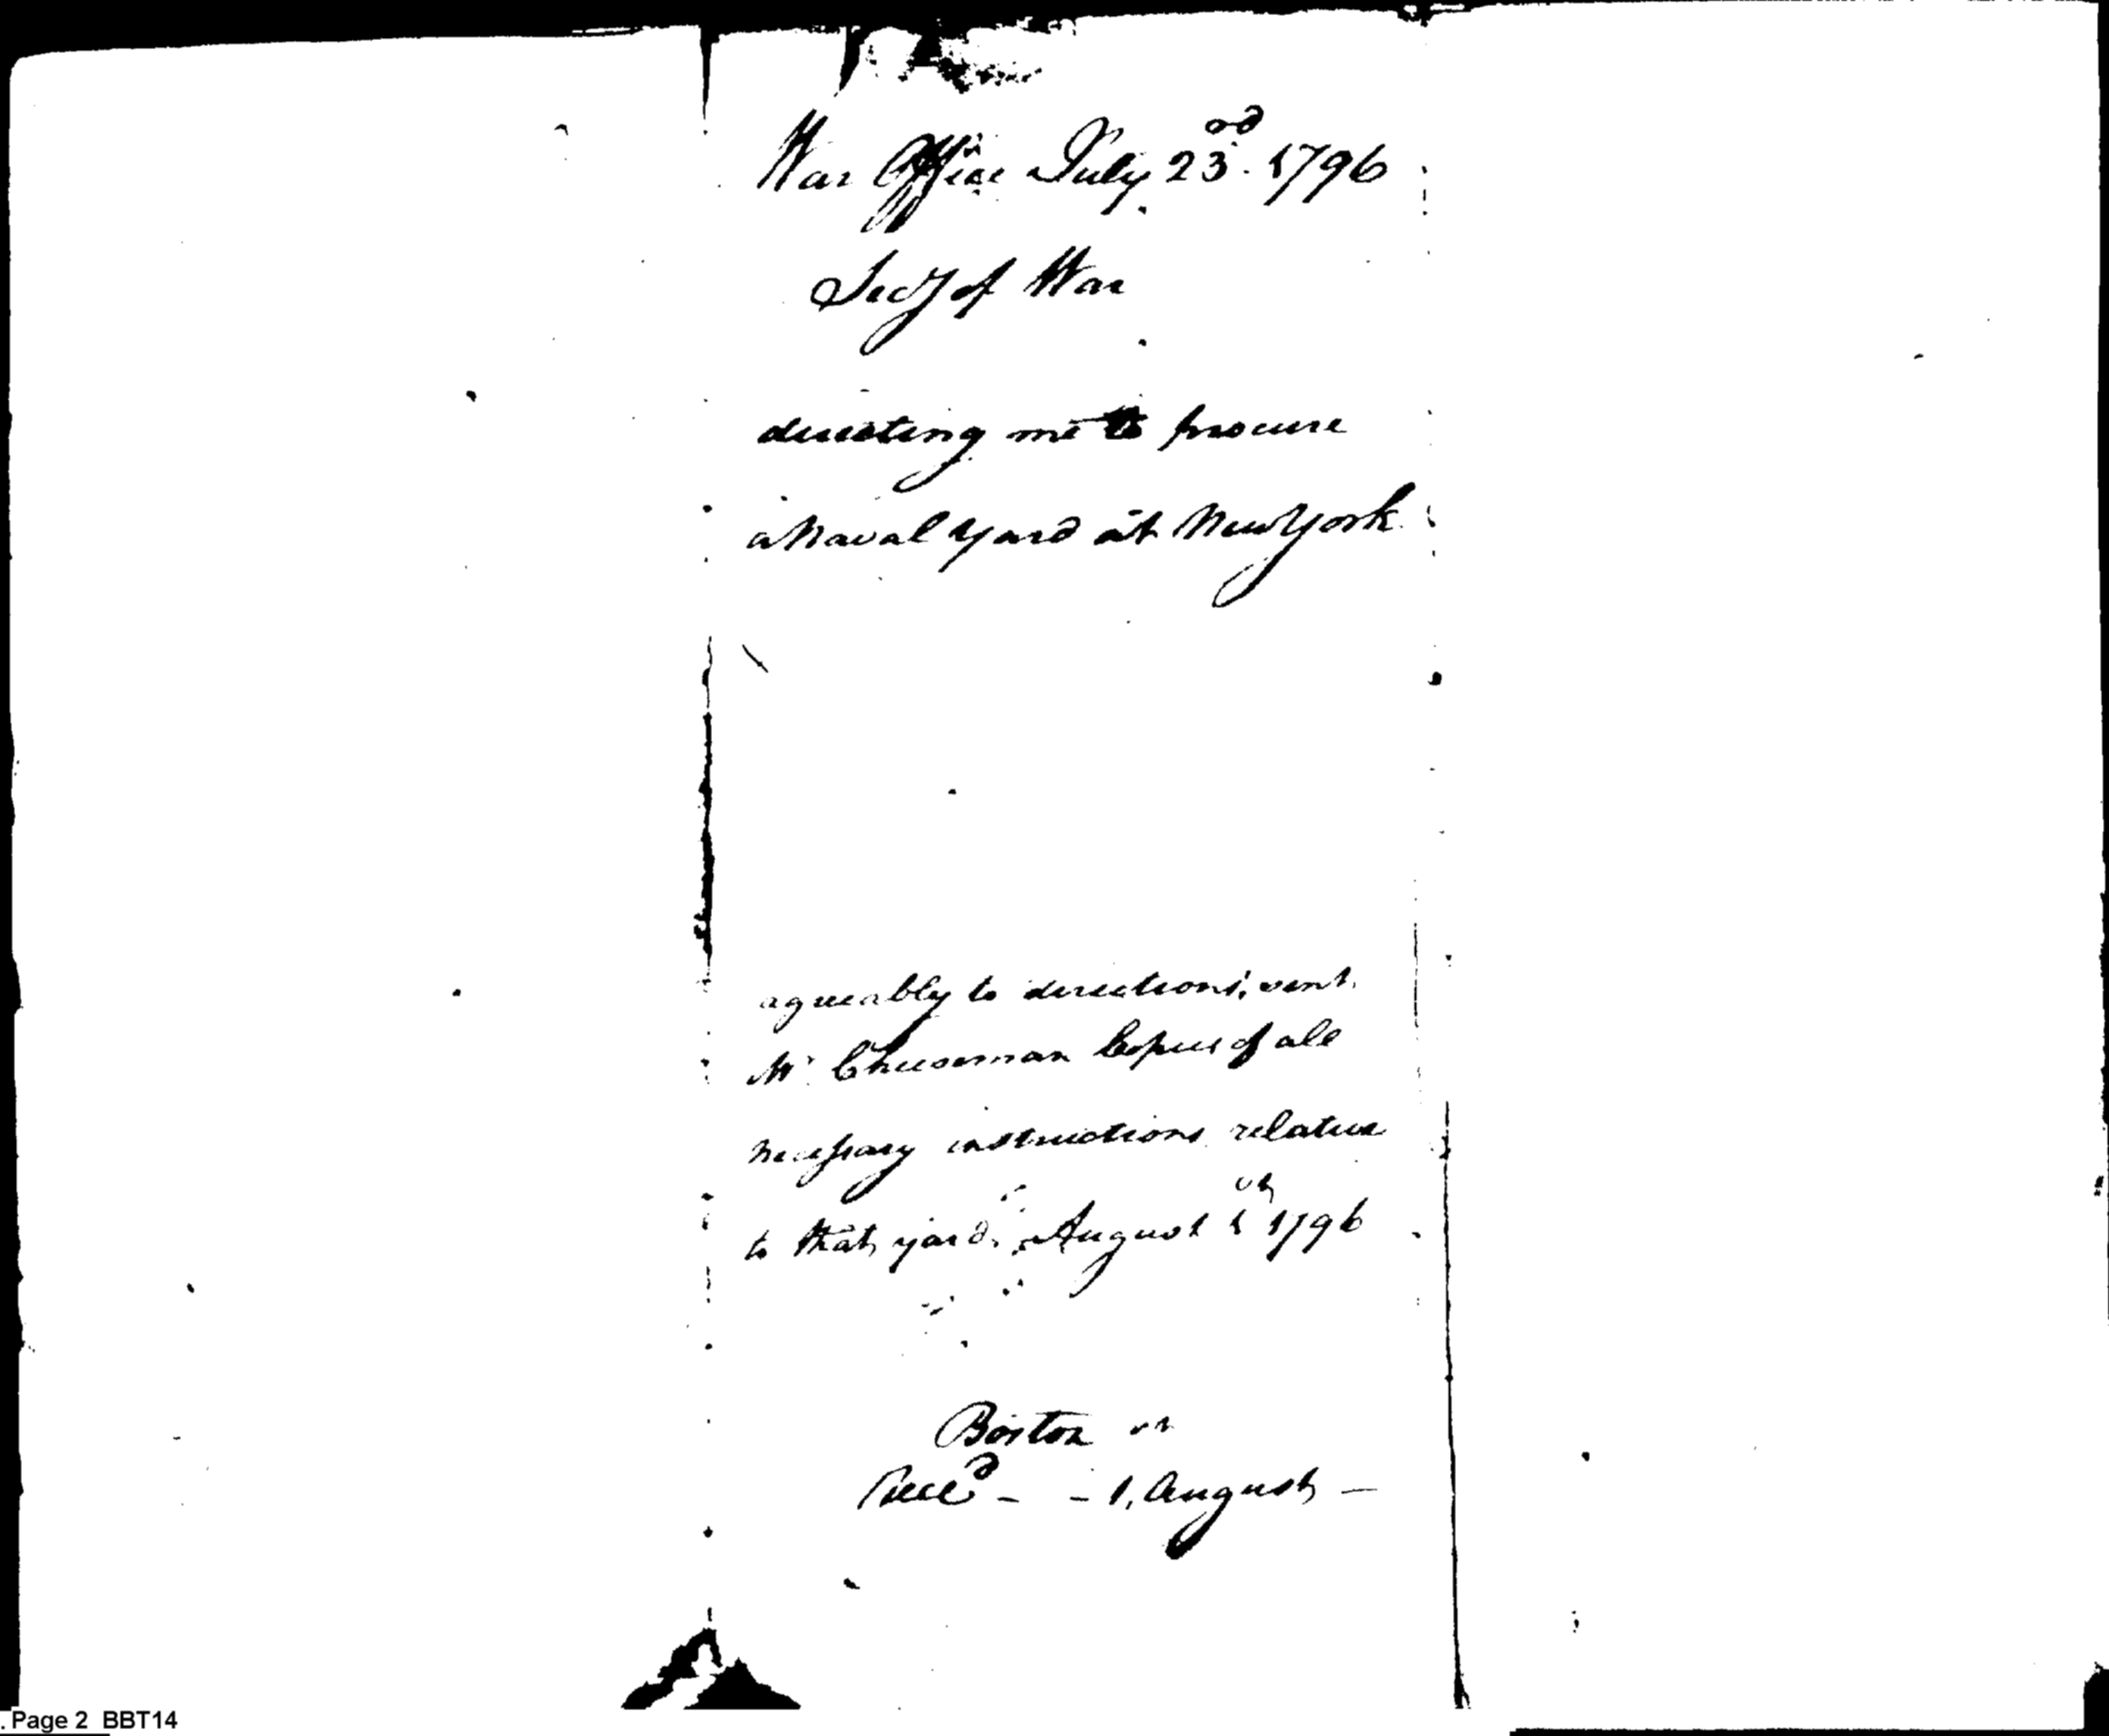 War Office July 23rd. 1796
Secy of War
directing me to procure
a Naval Yard at New York
agreeably to directions, sent
Mr Cheeseman Copies of all
necessary instructions relative
to that yard. August 5th 1796
Boston
Recd - - 1, August —
. Page 2 BBT14